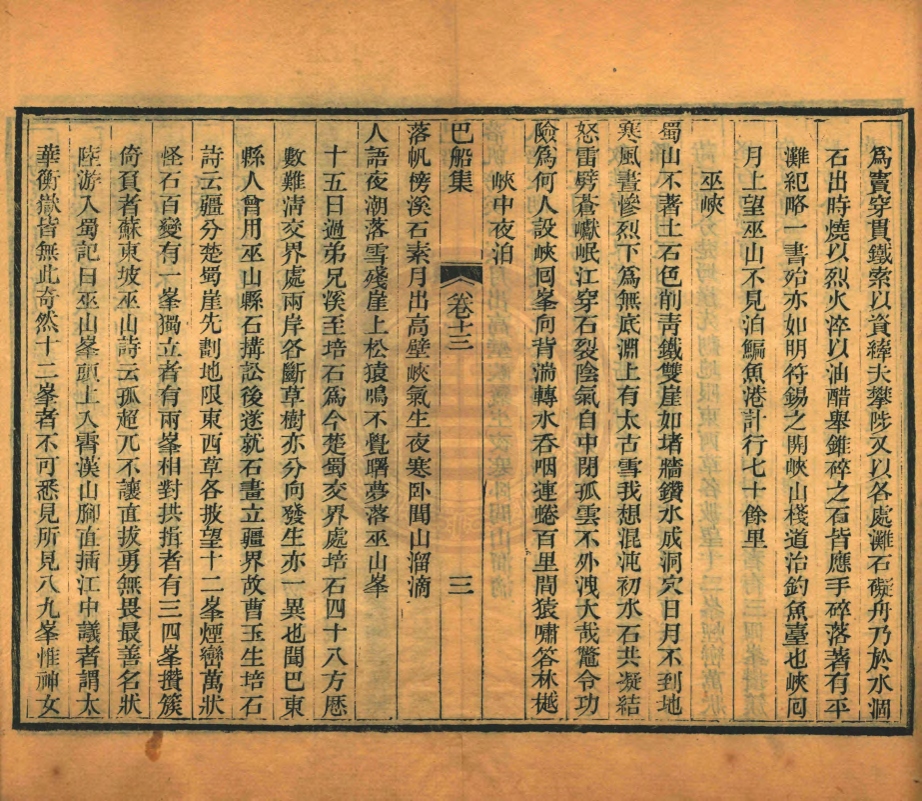 為竇穿貫鐵索以資縴夫攀陟又以各處灘石礙舟乃於水涸
石出時燒以烈火淬以油醋舉錐碎之石皆應手碎落著有平
灘紀略一書殆亦如明符錫之開峽山棧道治釣魚臺也峽囘
月上望巫山不見泊鯿魚港計行七十餘里
巫峽
蜀山不著土石色削靑鐵雙崖如堵牆鑽水成洞穴日月不到地
寒風晝慘烈下為無底淵上有太古雪我想混沌初水石共凝結
怒雷劈蒼巘岷江穿石裂陰氣自中閉孤雲不外洩大哉鼈令功
險為何人設峽囘峯向背湍轉水吞咽連蜷百里間猿嘯答林樾
峽中夜泊
落帆傍溪石素月出高壁峽氣生夜寒臥聞山溜滴
巴船集
卷十三
三
人語夜潮落雪殘崖上松猿鳴不覺曙夢落巫山峯
十五日過弟兄溪至培石為今楚蜀交界處培石四十八方厯
數難淸交界處兩岸各斷草樹亦分向發生亦一異也聞巴東
縣人曾用巫山縣石搆訟後遂就石畫立疆界故曹玉生培石
詩云疆分楚蜀崖先劃地限東西草各披望十二峯煙巒萬狀
怪石百變有一峯獨立者有兩峯相對拱揖者有三四峯攢簇
倚負者蘇東坡巫山詩云孤超兀不讓直拔勇無畏最善名狀
陸游入蜀記曰巫山峯頭上入霄漢山腳直插江中議者謂太
華衡嶽皆無此奇然十二峯者不可悉見所見八九峯惟神女